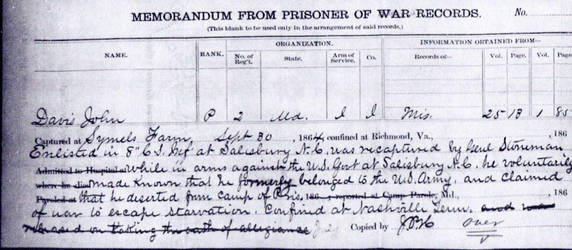 MEMORANDUM FROM PRISONER OF WAR RECORDS. No.
(This blank to be used only in the arrangement of said records.)
NAME. RANK. ORGANIZATION. INFORMATION OBTAINED FROM—
No. of Reg't. State. Arm of Service. Co. Records of— Vol. Page. Vol. Page.
Davis John P 2 Md. I I Mis. 25 13 1 85
Captured at Symels Farm, Sept 30, 1864, confined at Richmond, Va., , 186
Enlisted in 8" C.S. Inf at Salisbury N.C. was recaptured by Genl Stoneman
Admitted to Hospital at While in arms against the U.S. Govt at Salisbury N.C. he voluntarily
where he died made known that he formerly belonged to the U.S. Army, and claimed
Paroled at that he deserted from Camp of Pris. 186 ; reported at Camp Parole, Md., , 186
of war to escape starvation. Confined at Nashville Tenn. and was
released on taking the oath of allegiance Copied by over